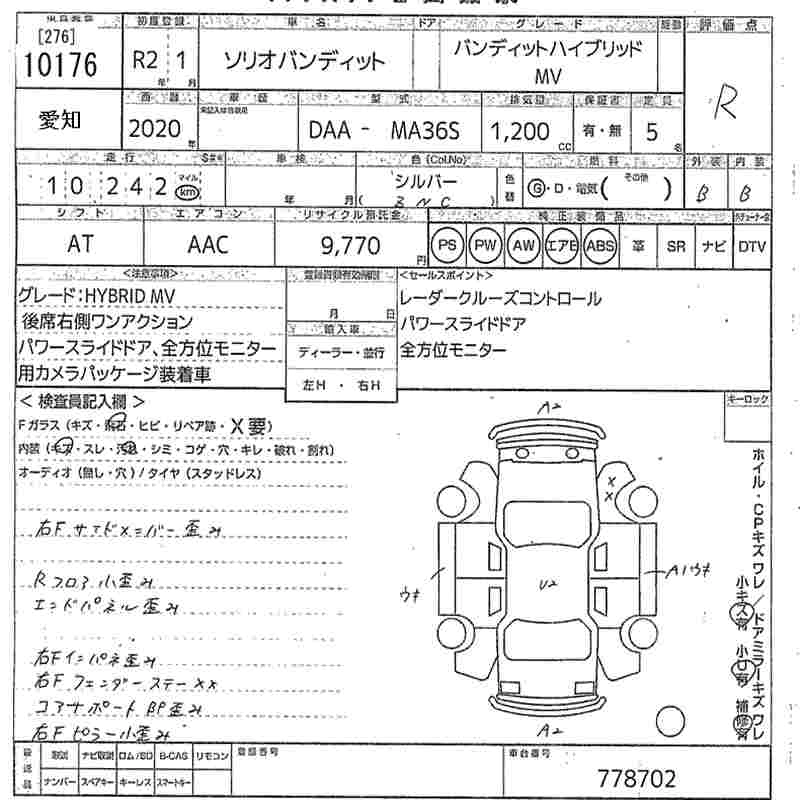 [276]
10176
初度登録
車名
ドア
グレード
評価点
R2 1
年 月
ソリオバンディット
バンディットハイブリッド
MV
R
愛知
車歴
車種
型式
排気量
保証書
定員
2020 年
DAA - MA36S
1,200 cc
有・無
5 名
走行
車検
色 (Col.No)
色替
燃料
外装
内装
10242
マイル
km
年 月
シルバー
( BNC )
G・D・電気 (その他 )
B
B
シフト
エアコン
リサイクル預託金
純正装備品
AT
AAC
9,770 円
PS
PW
AW
エアB
ABS
革
SR
ナビ
DTV
<注意事項>
<セールスポイント>
グレード:HYBRID MV
後席右側ワンアクション
パワースライドドア、全方位モニター
用カメラパッケージ装着車
月 日
輸入車
ディーラー・並行
左H ・ 右H
レーダークルーズコントロール
パワースライドドア
全方位モニター
< 検査員記入欄 >
Fガラス (キズ・飛石・ヒビ・リペア跡・X要)
内装 (キズ・スレ・汚れ・シミ・コゲ・穴・キレ・破れ・割れ)
オーディオ (無し・穴) / タイヤ (スタッドレス)
右Fサイドメンバー歪み
Rフロア小歪み
エンドパネル歪み
右Fインパネ歪み
右Fフェンダーステー××
コアサポートBP歪み
右Fピラー小歪み
A2
X
X
ウキ
U2
A1ウキ
A2
キーロック
ホイル・CPキズワレ/ドアミラーキズワレ
小キズ有 小凹有 補修有
取説
ナビ取説
ロム/SD
B-CAS
リモコン
ナンバー
スペアキー
キーレス
スマートキー
登録番号
車台番号
778702